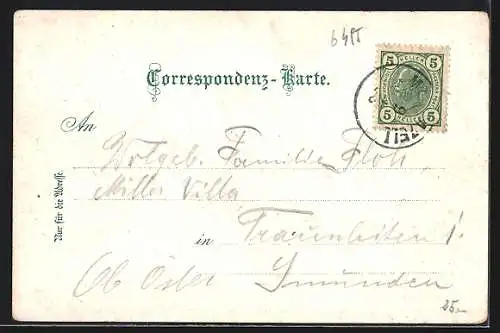 6455
Correspondenz-Karte.
5 HELLER 5
5 HELLER 5
ZELL
An
Wolgeb. Familie Floh
Miller Villa
in Traunleiten 1.
Ob Öster Gmunden
Nur für die Adresse.
25.-